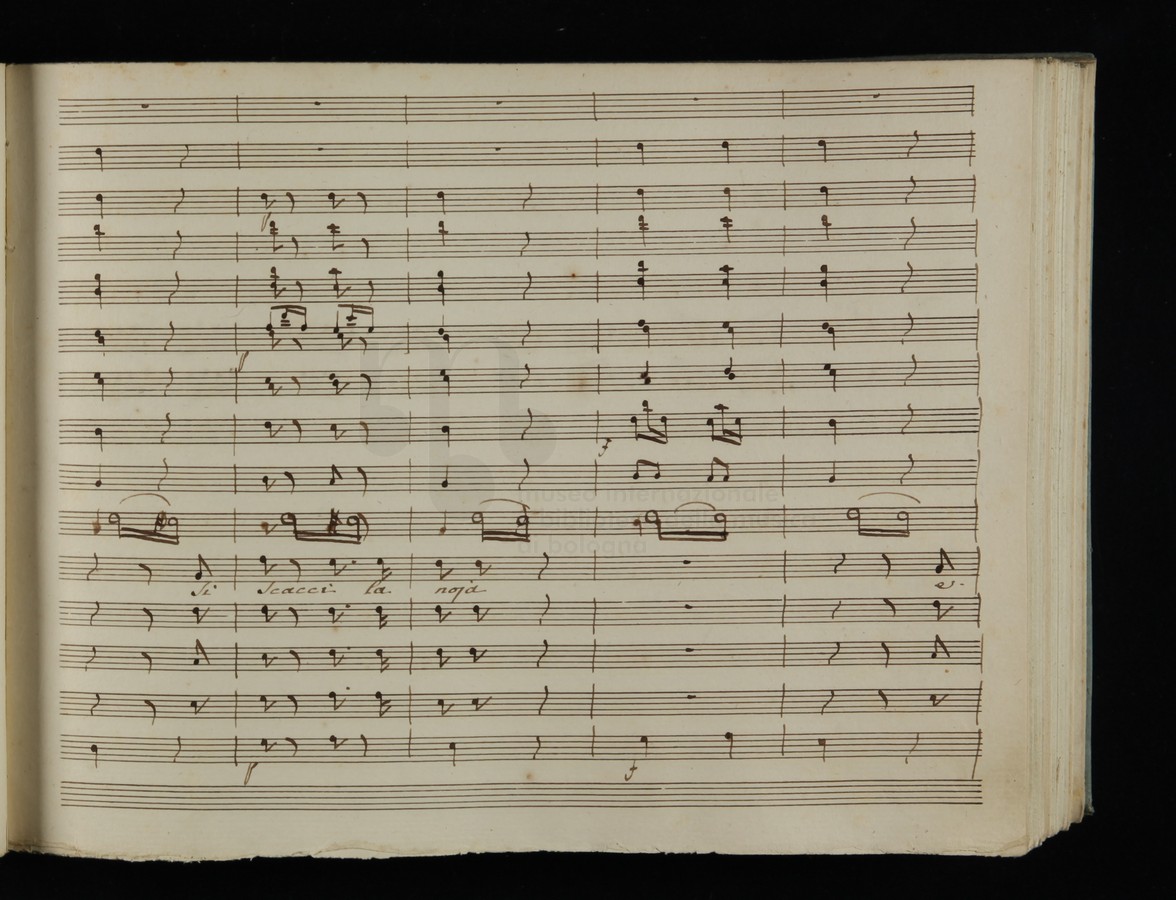 p
p
f
museo internazionale
e biblioteca della musica
di bologna
si scacci la noja e-
p f